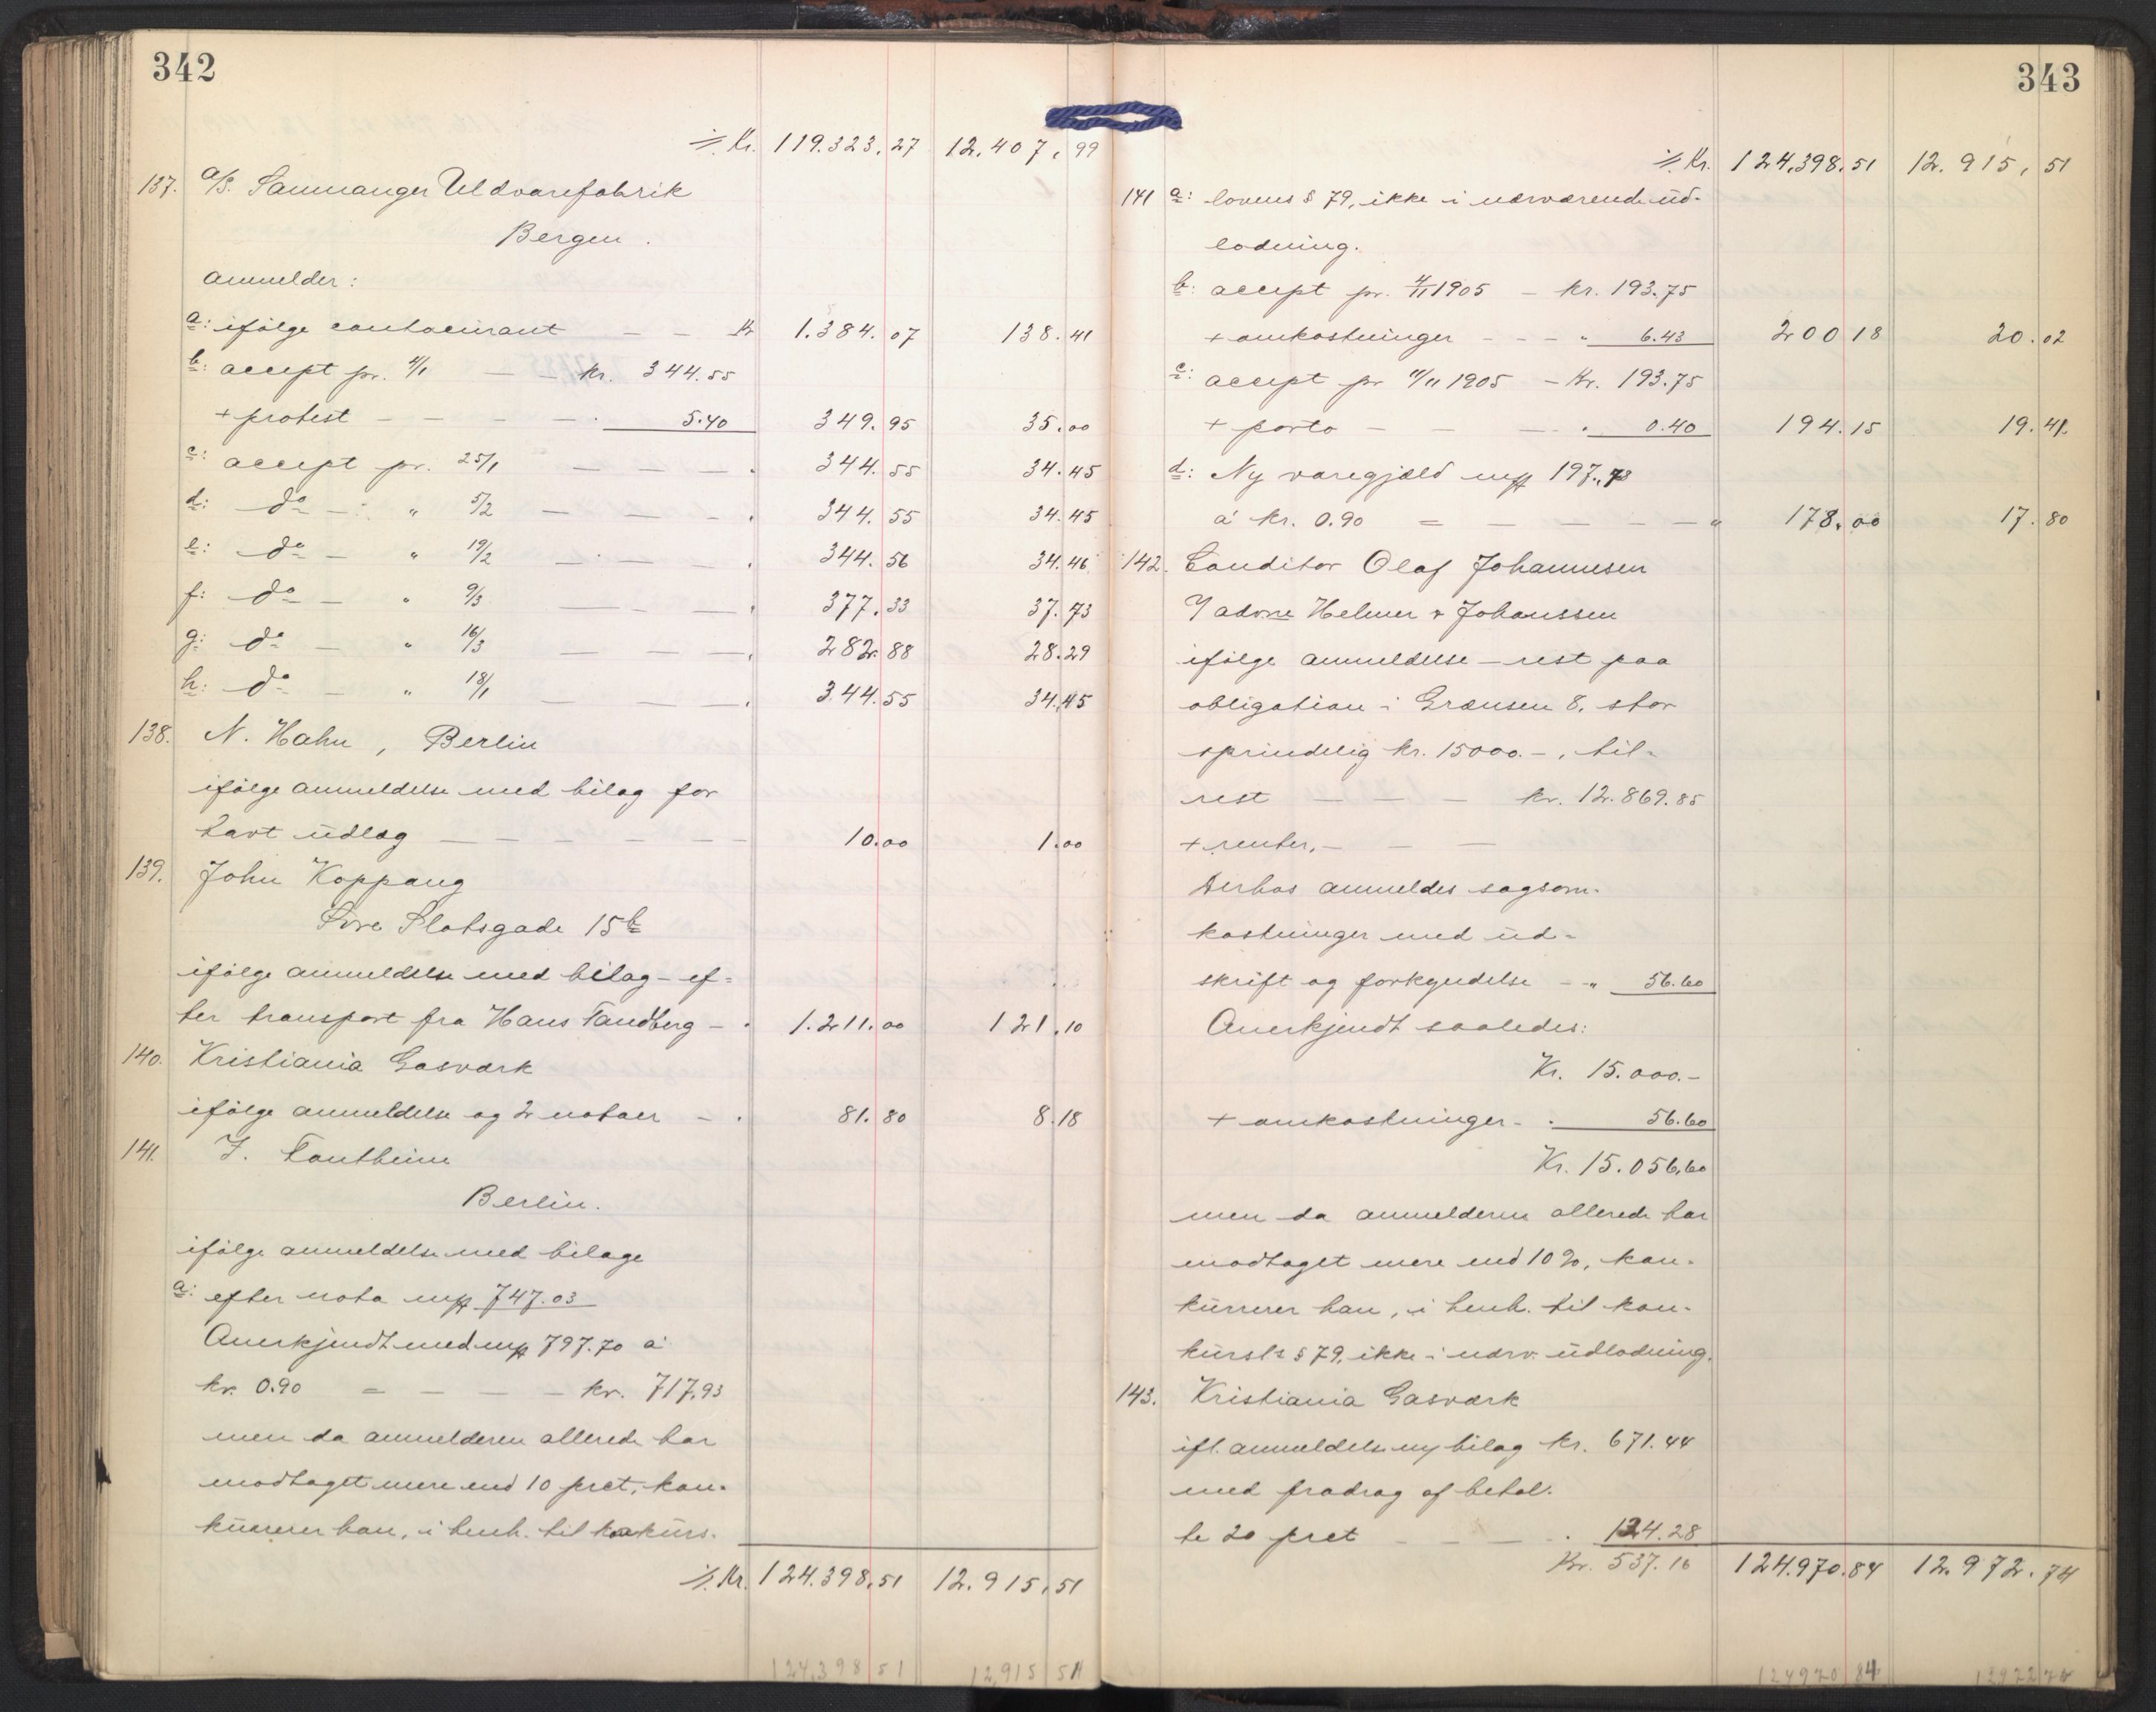 342
÷ Kr. 119.323.27 12.407.99
137. A/S. Samnanger Uldvarefabrik
Bergen.
anmelder:
a: ifølge contocurant — — Kr 1.384.07 138.41
b: accept pr. 4/1 — — kr. 344.55
+ protest — — — — 5.40 349.95 35.00
c: accept pr. 25/1 — — — 344.55 34.45
d: do — " 5/2 — — — 344.55 34.45
e: do — " 19/2 — — — 344.56 34.46
f: do — " 9/3 — — — 377.33 37.73
g: do — " 16/3 — — — 282.88 28.29
h: do — " 18/1 — — — 344.55 34.45
138. N. Hahn, Berlin
ifølge anmeldelse med bilag for
havt udlæg — — — — — 10.00 1.00
139. John Koppang
Øvre Slotsgade 15b
ifølge anmeldelse med bilag – ef=
ter transport fra Hans Tandberg – 1.211.00 121.10
140. Kristiania Gasværk
ifølge anmeldelse og 2 notaer – 81.80 8.18
141. J. Fontheim
Berlin.
ifølge anmeldelse med bilage
a: efter nota mk 747.03
Anerkjendt med mk 797.70 a
kr. 0.90 = — — — kr. 717.93
men da anmelderen allerede har
modtaget mere end 10 prct, kon-
kurerer han, i henh. til konkurs-
÷ Kr. 124.398.51 12.915.51
124,398 51 12,915 51
343
÷ Kr. 124.398.51 12.915.51
141 a: lovens § 79, ikke i nærværende ud-
lodning.
b: accept pr. 4/11 1905 – kr. 193.75
+ omkostninger – – – " 6.43 200 18 20.02
c: accept pr 11/11 1905 – Kr. 193.75
+ porto — — — 0.40 194.15 19.41
d: Ny varegjæld mk 197.73
á kr. 0.90 = — — — — " 178.00 17.80
142. Conditor Olaf Johannesen
v/ advne Helmer & Johanssen
ifølge anmeldelse – rest paa
obligation i Grænsen 8. stor
oprindelig kr. 15000.–, til-
rest — — — kr. 12.869.85
+ renter. — — —
Derhos anmeldes sagsom-
kostninger med ud-
skrift og forkyndelse – " 56.60
Anerkjendt saaledes:
Kr. 15.000.–
+ omkostninger – 56.60
Kr. 15.056,60
men da anmelderen allerede har
modtaget mere end 10 %, kon-
kurrerer han, i henh. til kon-
kursls § 79, ikke i nærv. udlodning.
143. Kristiania Gasværk
ifl. anmeldelse m/ bilag kr. 671.44
med fradrag af betal-
te 20 prct — — — 134.28
Kr. 537.16 124.970.84 12.972.74
124970 84 12972 74